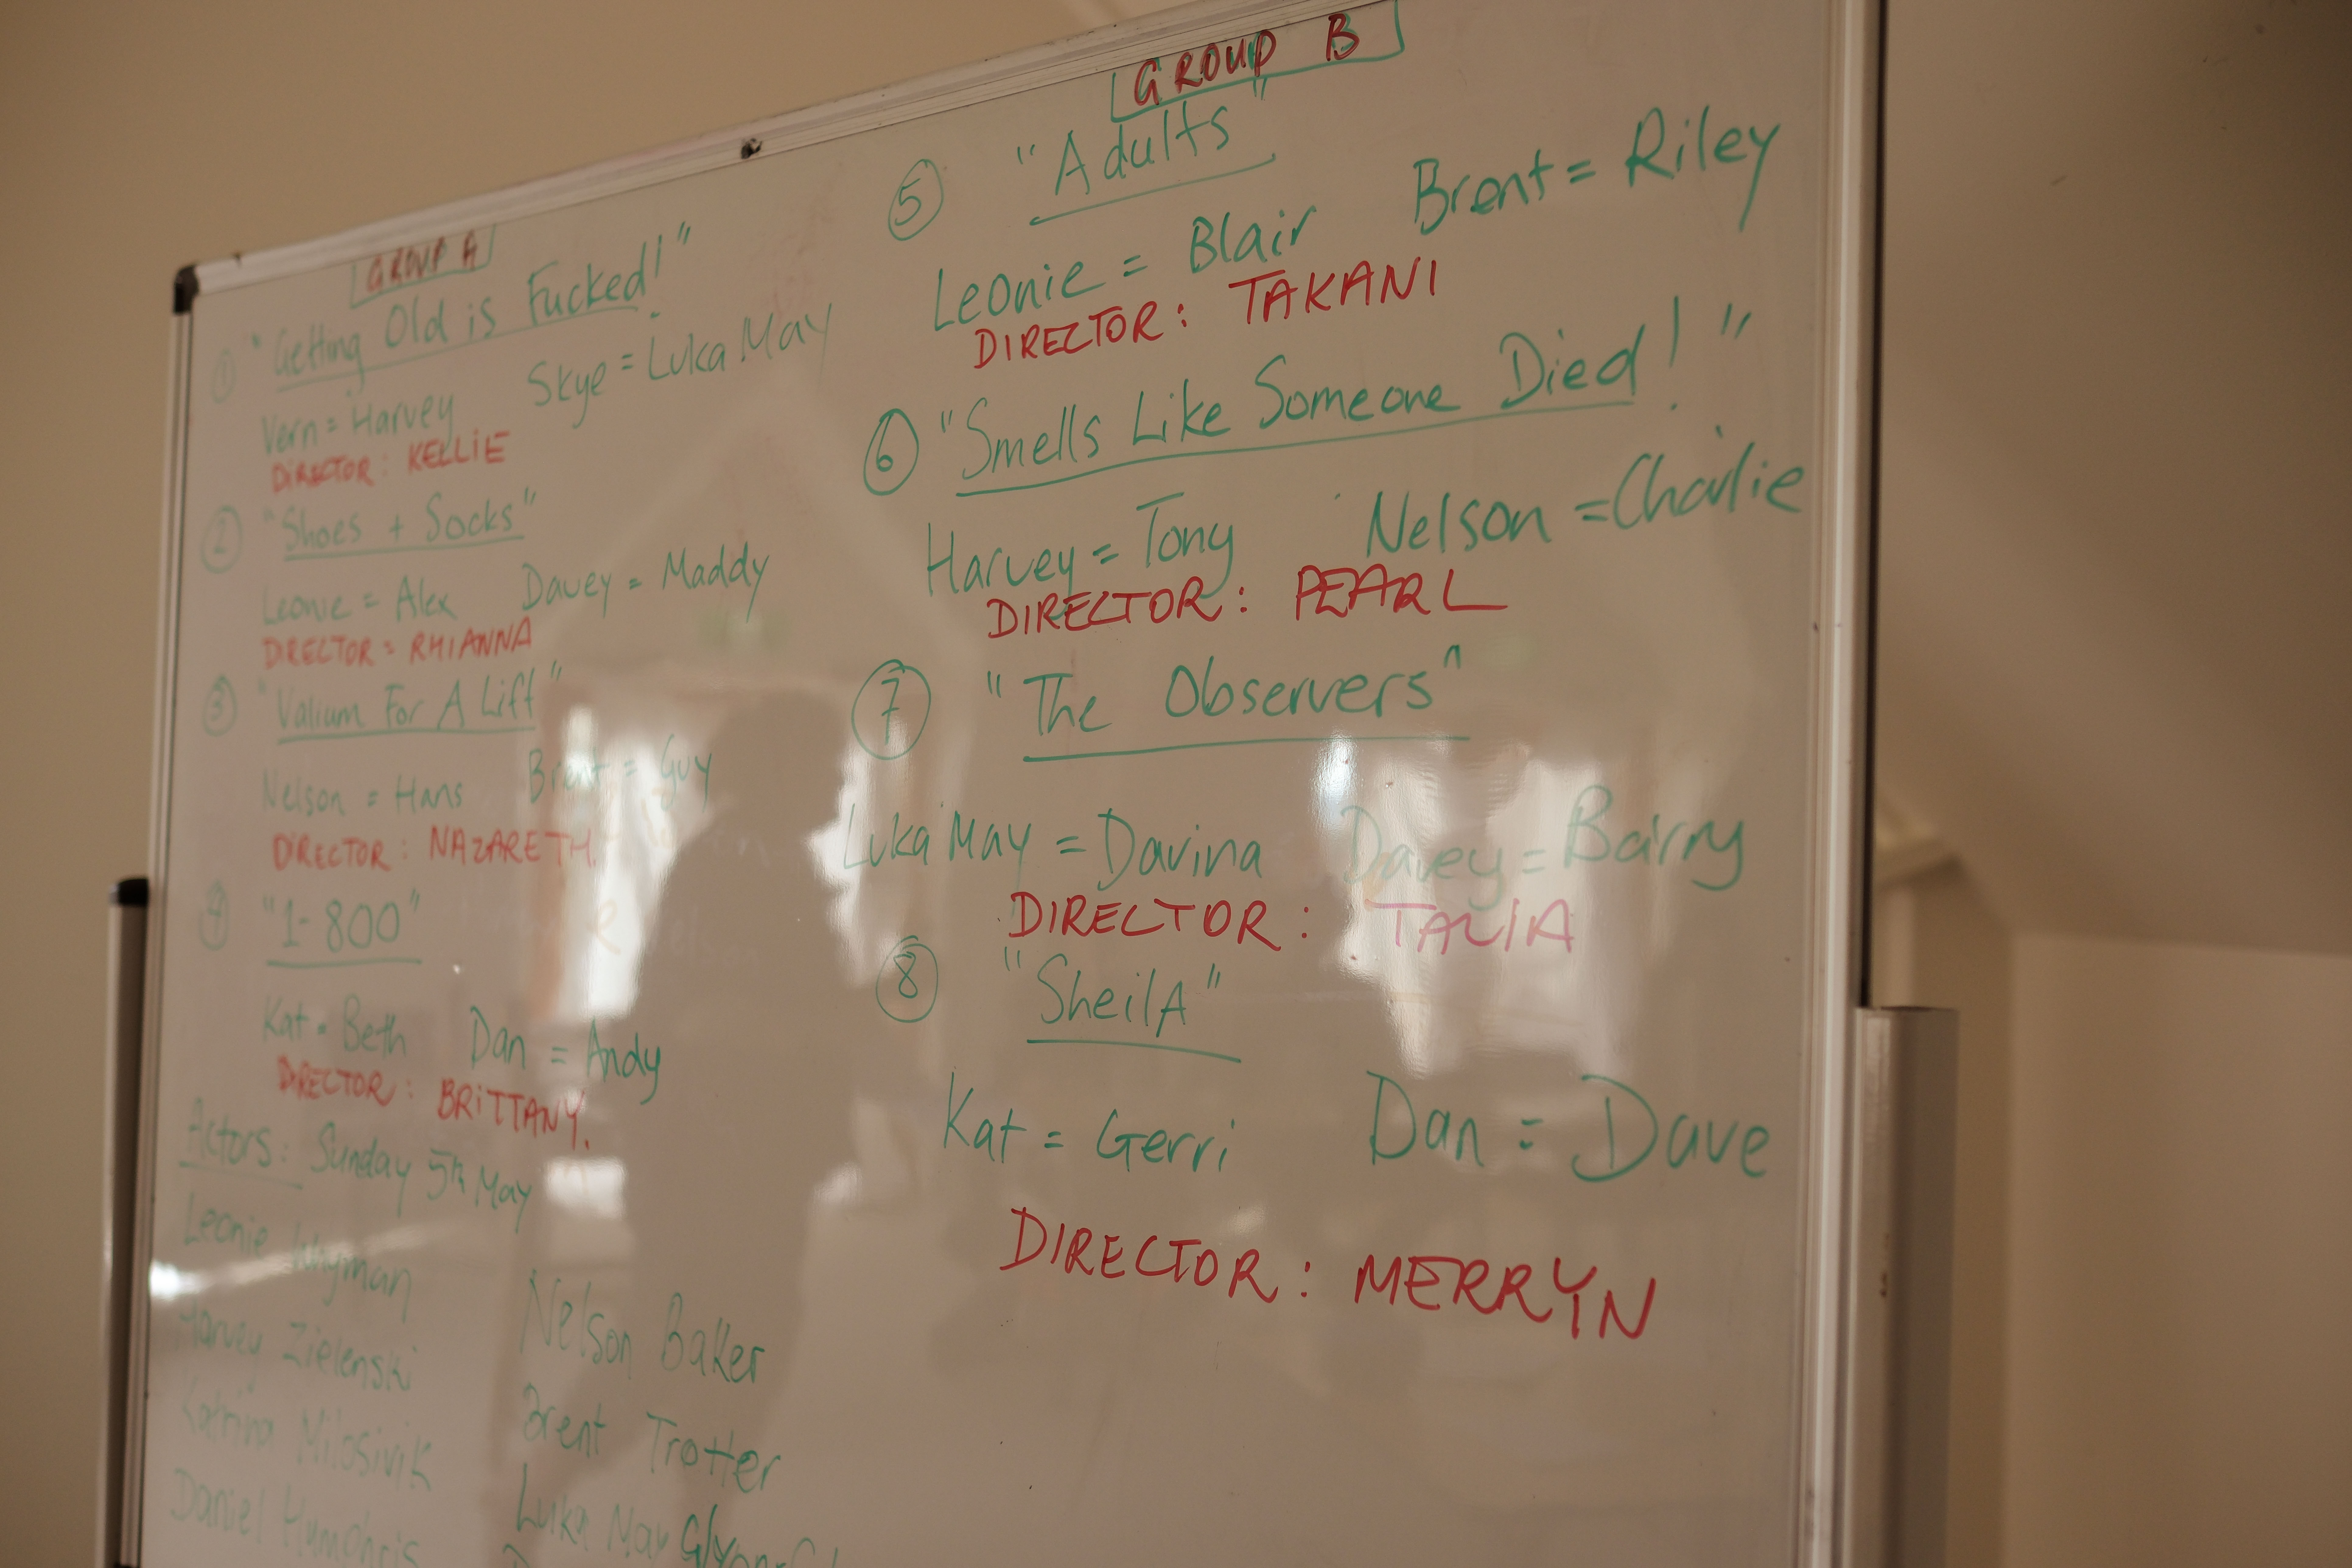 GROUP A
① "Getting Old is Fucked!"
Vern = Harvey Skye = Luka May
DIRECTOR: KELLIE
② "Shoes + Socks"
Leonie = Alex Davey = Maddy
DIRECTOR = RHIANNA
③ "Valium For A Lift"
Nelson = Hans Brent = Guy
DIRECTOR: NAZARETH.
④ "1-800"
Kat = Beth Dan = Andy
DIRECTOR: BRITTANY.
Actors: Sunday 5th May
Leonie Whyman
Harvey Zielenski
Katrina Milosivik
Daniel Humphris
Nelson Baker
Brent Trotter
Luka May
GROUP B
⑤ "Adults"
Leonie = Blair Brent = Riley
DIRECTOR: TAKANI
⑥ "Smells Like Someone Died!"
Harvey = Tony Nelson = Charlie
DIRECTOR: PEARL
⑦ "The Observers"
Luka May = Davina Davey = Barry
DIRECTOR: TALIA
⑧ "SheilA"
Kat = Gerri Dan = Dave
DIRECTOR: MERRYN